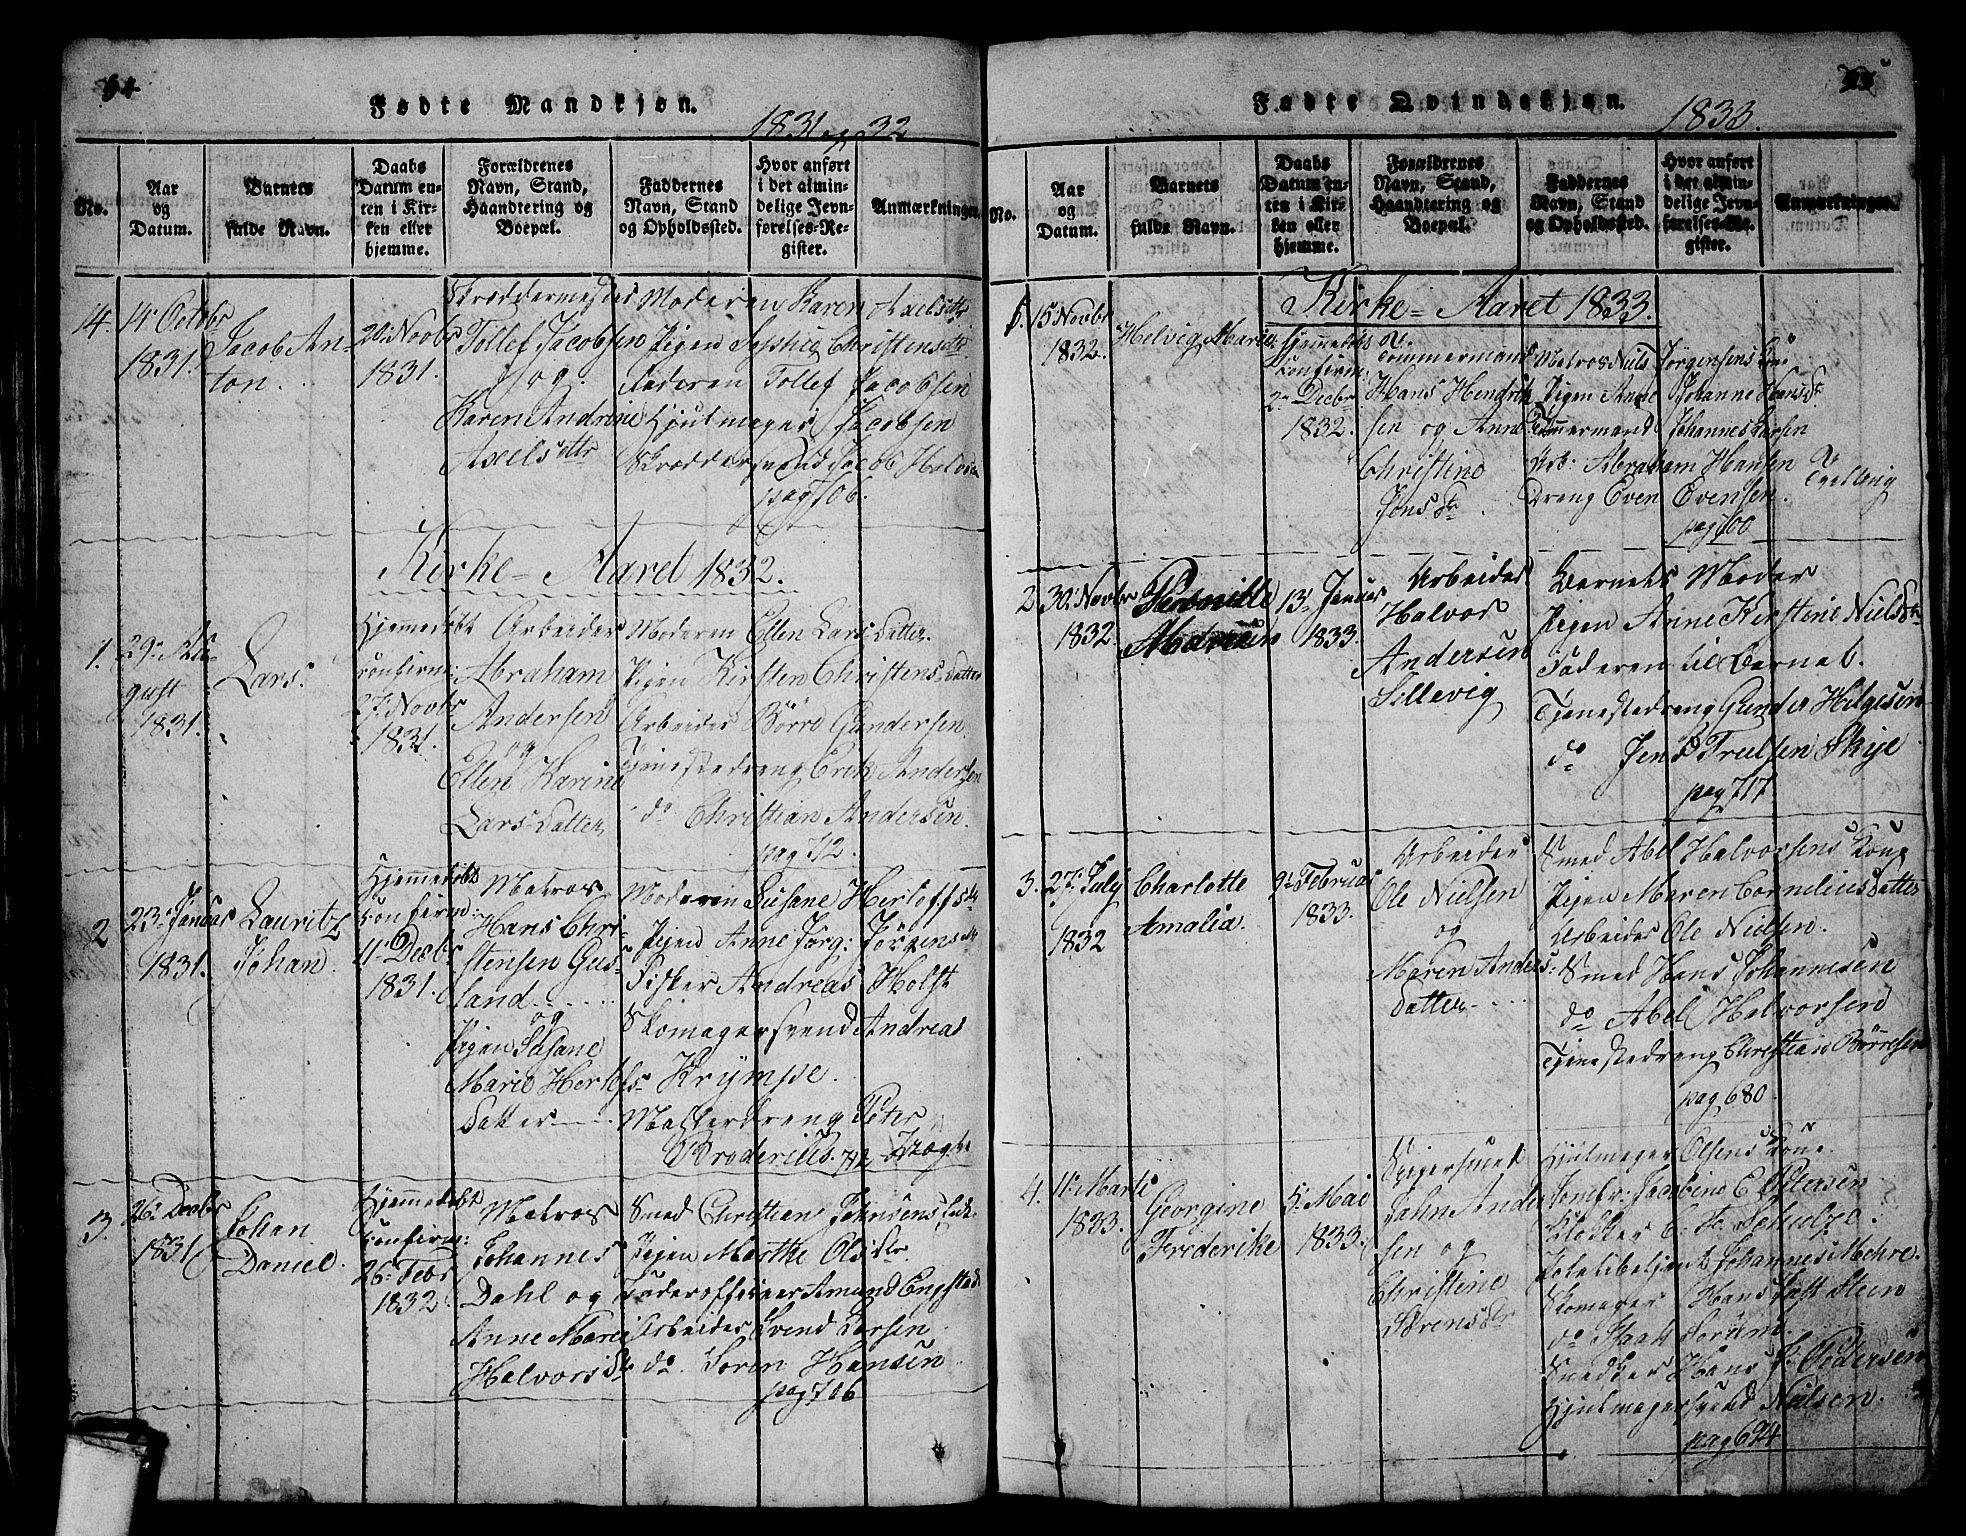 64.
Fødte Mandkjøn.
1831 og 32
No.
Aar og Datum.
Barnets fulde Navn.
Daabs Datum enten i Kirken eller hjemme.
Forældrenes Navn, Stand, Haandtering og Boepæl.
Faddernes Navn, Stand og Opholdssted.
Hvor anført i det almindelige Jevnførelses-Register.
Anmærkninger.
14.
14 Octobr
1831.
Jacob An-
ton.
20. Novbr
1831.
Skræddermester
Tollef Jacobsen
og
Karen Andrine
Axelsdtr
Moderen Karen Axelsdtr
Pigen Sophie Christensdtr
Faderen Tollef Jacobsen
Hjulmager Jacobsen
Skræddersvend Jacob
pag 706.
Kirke-Aaret 1832.
1.
29. Au-
gust
1831.
Lars.
Hjemmedøbt
confirm:
27. Novbr
1831.
Arbeider
Abraham
Andersen
og
Ellen Karine
Lars Datter,
Moderen Ellen Lars Datter.
Pigen Kirsten Christens Datter
Arbeider Börre Gundersen
Tjenestedreng Erik Andersen
do Christian Andersen.
pag 712.
2
23. Januar
1831.
Lauritz
Johan.
Hjemmedøbt
confirm:
11. Decbr
1831.
Matros
Hans Chri-
stensen Gus-
land
og
Pigen Susane
Marie Herlofs-
Datter
Moderen Susane Herloffsdtr
Pigen Anne Jørg: Jörgensdtr
Fisker Andreas Holst
Skomagersvend Andreas
Krympe.
Matterdreng Peter
Broderius. 712
3.
26. Decbr
1831
Johan
Daniel.
Hjemmedøbt
confirm:
26. Febr
1832.
Matros
Johannes
Dahl og
Anne Marie
Halvorsdtr
Smed Christian Jahnsens Enke
Pigen Marthe Olsdtr
Underofficeer Amund Engstad
Arbeider Svend Larsen
do. Sören Hansen
pag 706
65
Fødte Qvindekjøn.
1833.
No.
Aar og Datum.
Barnets fulde Navn.
Daabs Datum enten i Kirken eller hjemme.
Forældrenes Navn, Stand, Haandtering og Boepæl.
Faddernes Navn, Stand og Opholdssted.
Hvor anført i det almindelige Jevnførelses-Register.
Anmærkninger.
Kirke-Aaret 1833.
1.
15 Novbr
1832.
Helvig Marie
Hjemmedøbt
confirm:
2. Decbr
1832.
Tømmermand
Hans Hendrik-
sen og Anne
Christine
Jensdtr
Matros Niels Jörgensens Kone
Pigen Anne Johanne Hansdtr
Tømmermand Johannes Larsen
Arb: Abraham Hansen
Dreng Even Evensen.
pag 700
2
30. Novbr
1832
Pernille
Mariane
13. Januar
1833.
Arbeider
Halvor
Andersen
Sillevig
Barnets Moder
Pigen Anne Kirstine Nielsdtr
Faderen til Barnet.
Tjenestedreng Gunder Helgesen
do Jens Truelsen Skije
pag 717
3.
27. July
1832
Charlotte
Amalia.
9. Februar
1833.
Arbeider
Ole Nielsen
og
Maren Anders:
Datter
Smed Abel Halvorsens Kone
Pigen Maren Cornelius Datter
Arbeider Ole Nielsen.
Smed Hans Johannesen
do Abel Halvorsen
Tjenestedreng Christian Börresen
pag 680.
4.
11. Marti
1833.
Georgine
Frederike
5. Mai
1833.
Jahn Ander-
sen og
Christine
Sörensdtr
Hjulmager Olsens Kone
Jomfr: Jacobine E Petersen
Klokker C. F. Schultze.
Johannes Mehre.
Skomager Hans Stein
do Isaak Sörum.
Snedker Hans P. Pedersen
Hjulmagersvend Nielsen.
pag 694